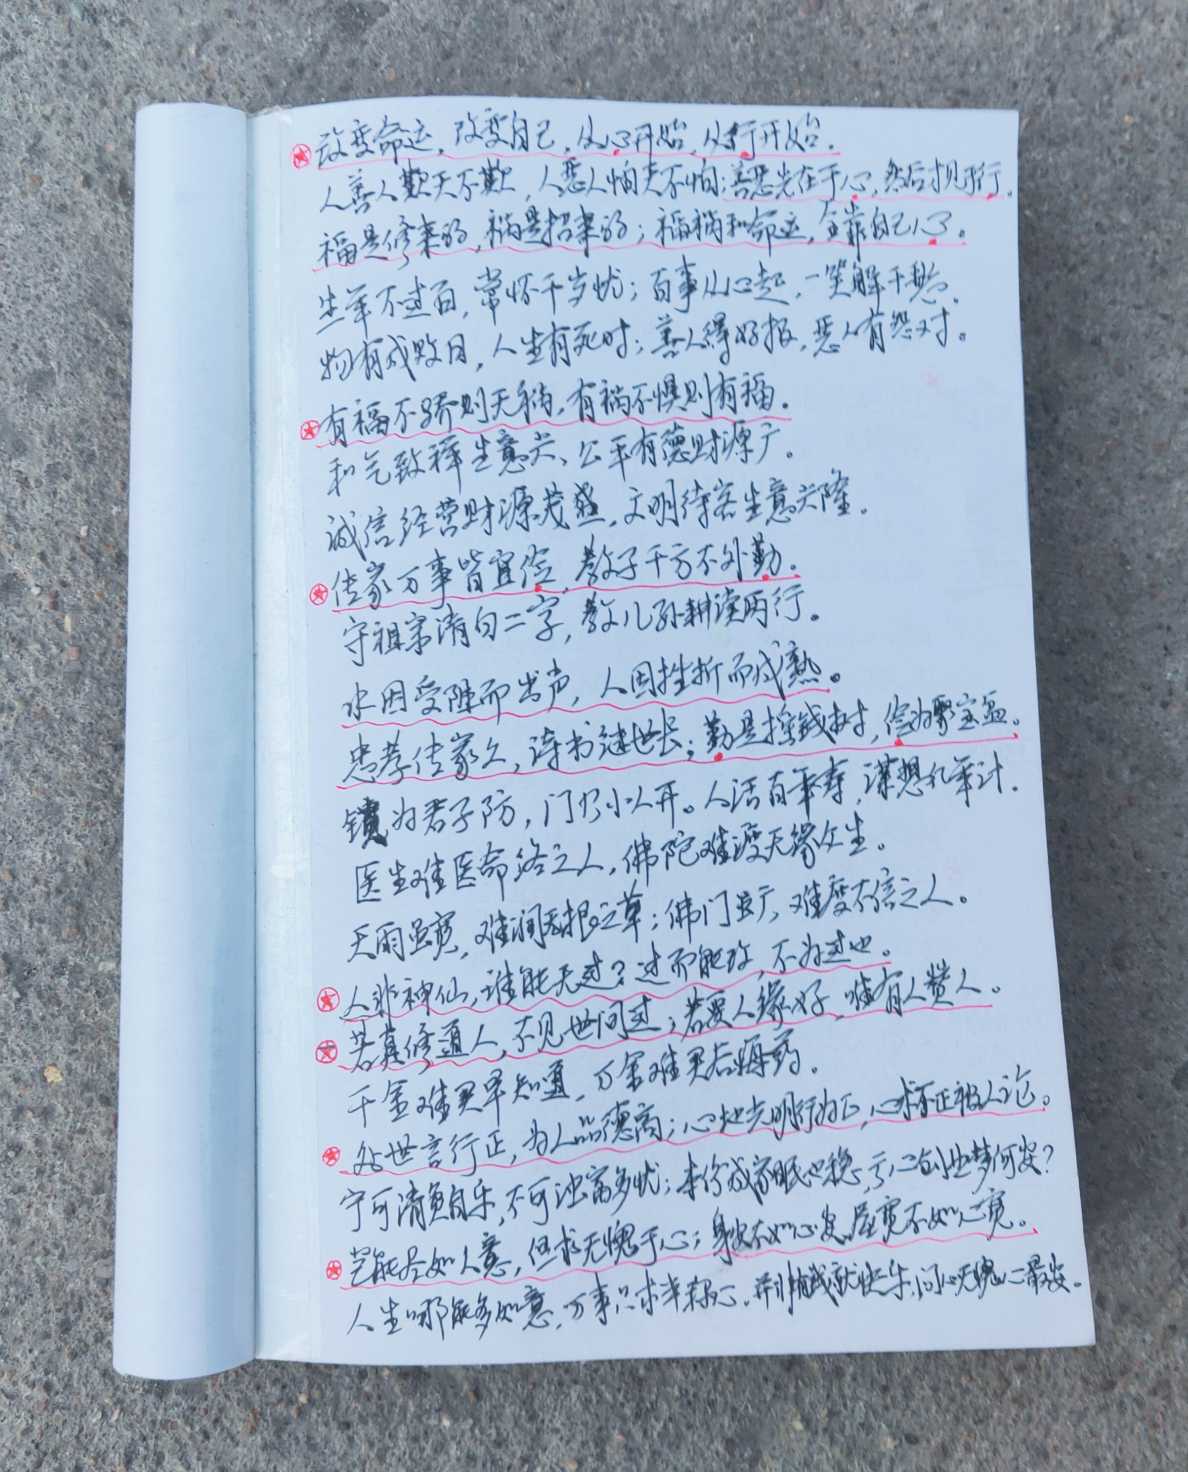 改变命运，改变自己，从心开始，从行开始。
人善人欺天不欺，人恶人怕天不怕；善恶先在于心，然后才见于行。
福是修来的，祸是招来的；福祸和命运，全靠自己心。
生年不过百，常怀千岁忧；百事从心起，一笑解千愁。
物有成败日，人生有死时；善人得好报，恶人有怨对。
有福不骄则无祸，有祸不惧则有福。
和气致祥生意兴、公平有德财源广。
诚信经营财源茂盛，文明待客生意兴隆。
传家万事皆宜俭，教子千方不外勤。
守祖宗清白二字，教儿孙耕读两行。
水因受阻而出声，人因挫折而成熟。
忠孝传家久，诗书继世长；勤是摇钱树，俭为聚宝盆。
锁为君子防，门为小人开。人活百年寿，谋想几年计。
医生难医命终之人，佛陀难渡无缘众生。
天雨虽宽，难润无根之草；佛门虽广，难度不信之人。
人非神仙，谁能无过？过而能改，不为过也。
若真修道人，不见世间过；若要人缘好，唯有人赞人。
千金难买早知道，万金难买后悔药。
处世言行正，为人品德高；心地光明行为正，心术不正被人论。
宁可清贫自乐，不可浊富多忧；本份成家眠也稳，亏心创业梦何安？
岂能尽如人意，但求无愧于心；身安不如心安，屋宽不如心宽。
人生哪能多如意，万事只求半称心。 就快乐，问心无愧心最安。